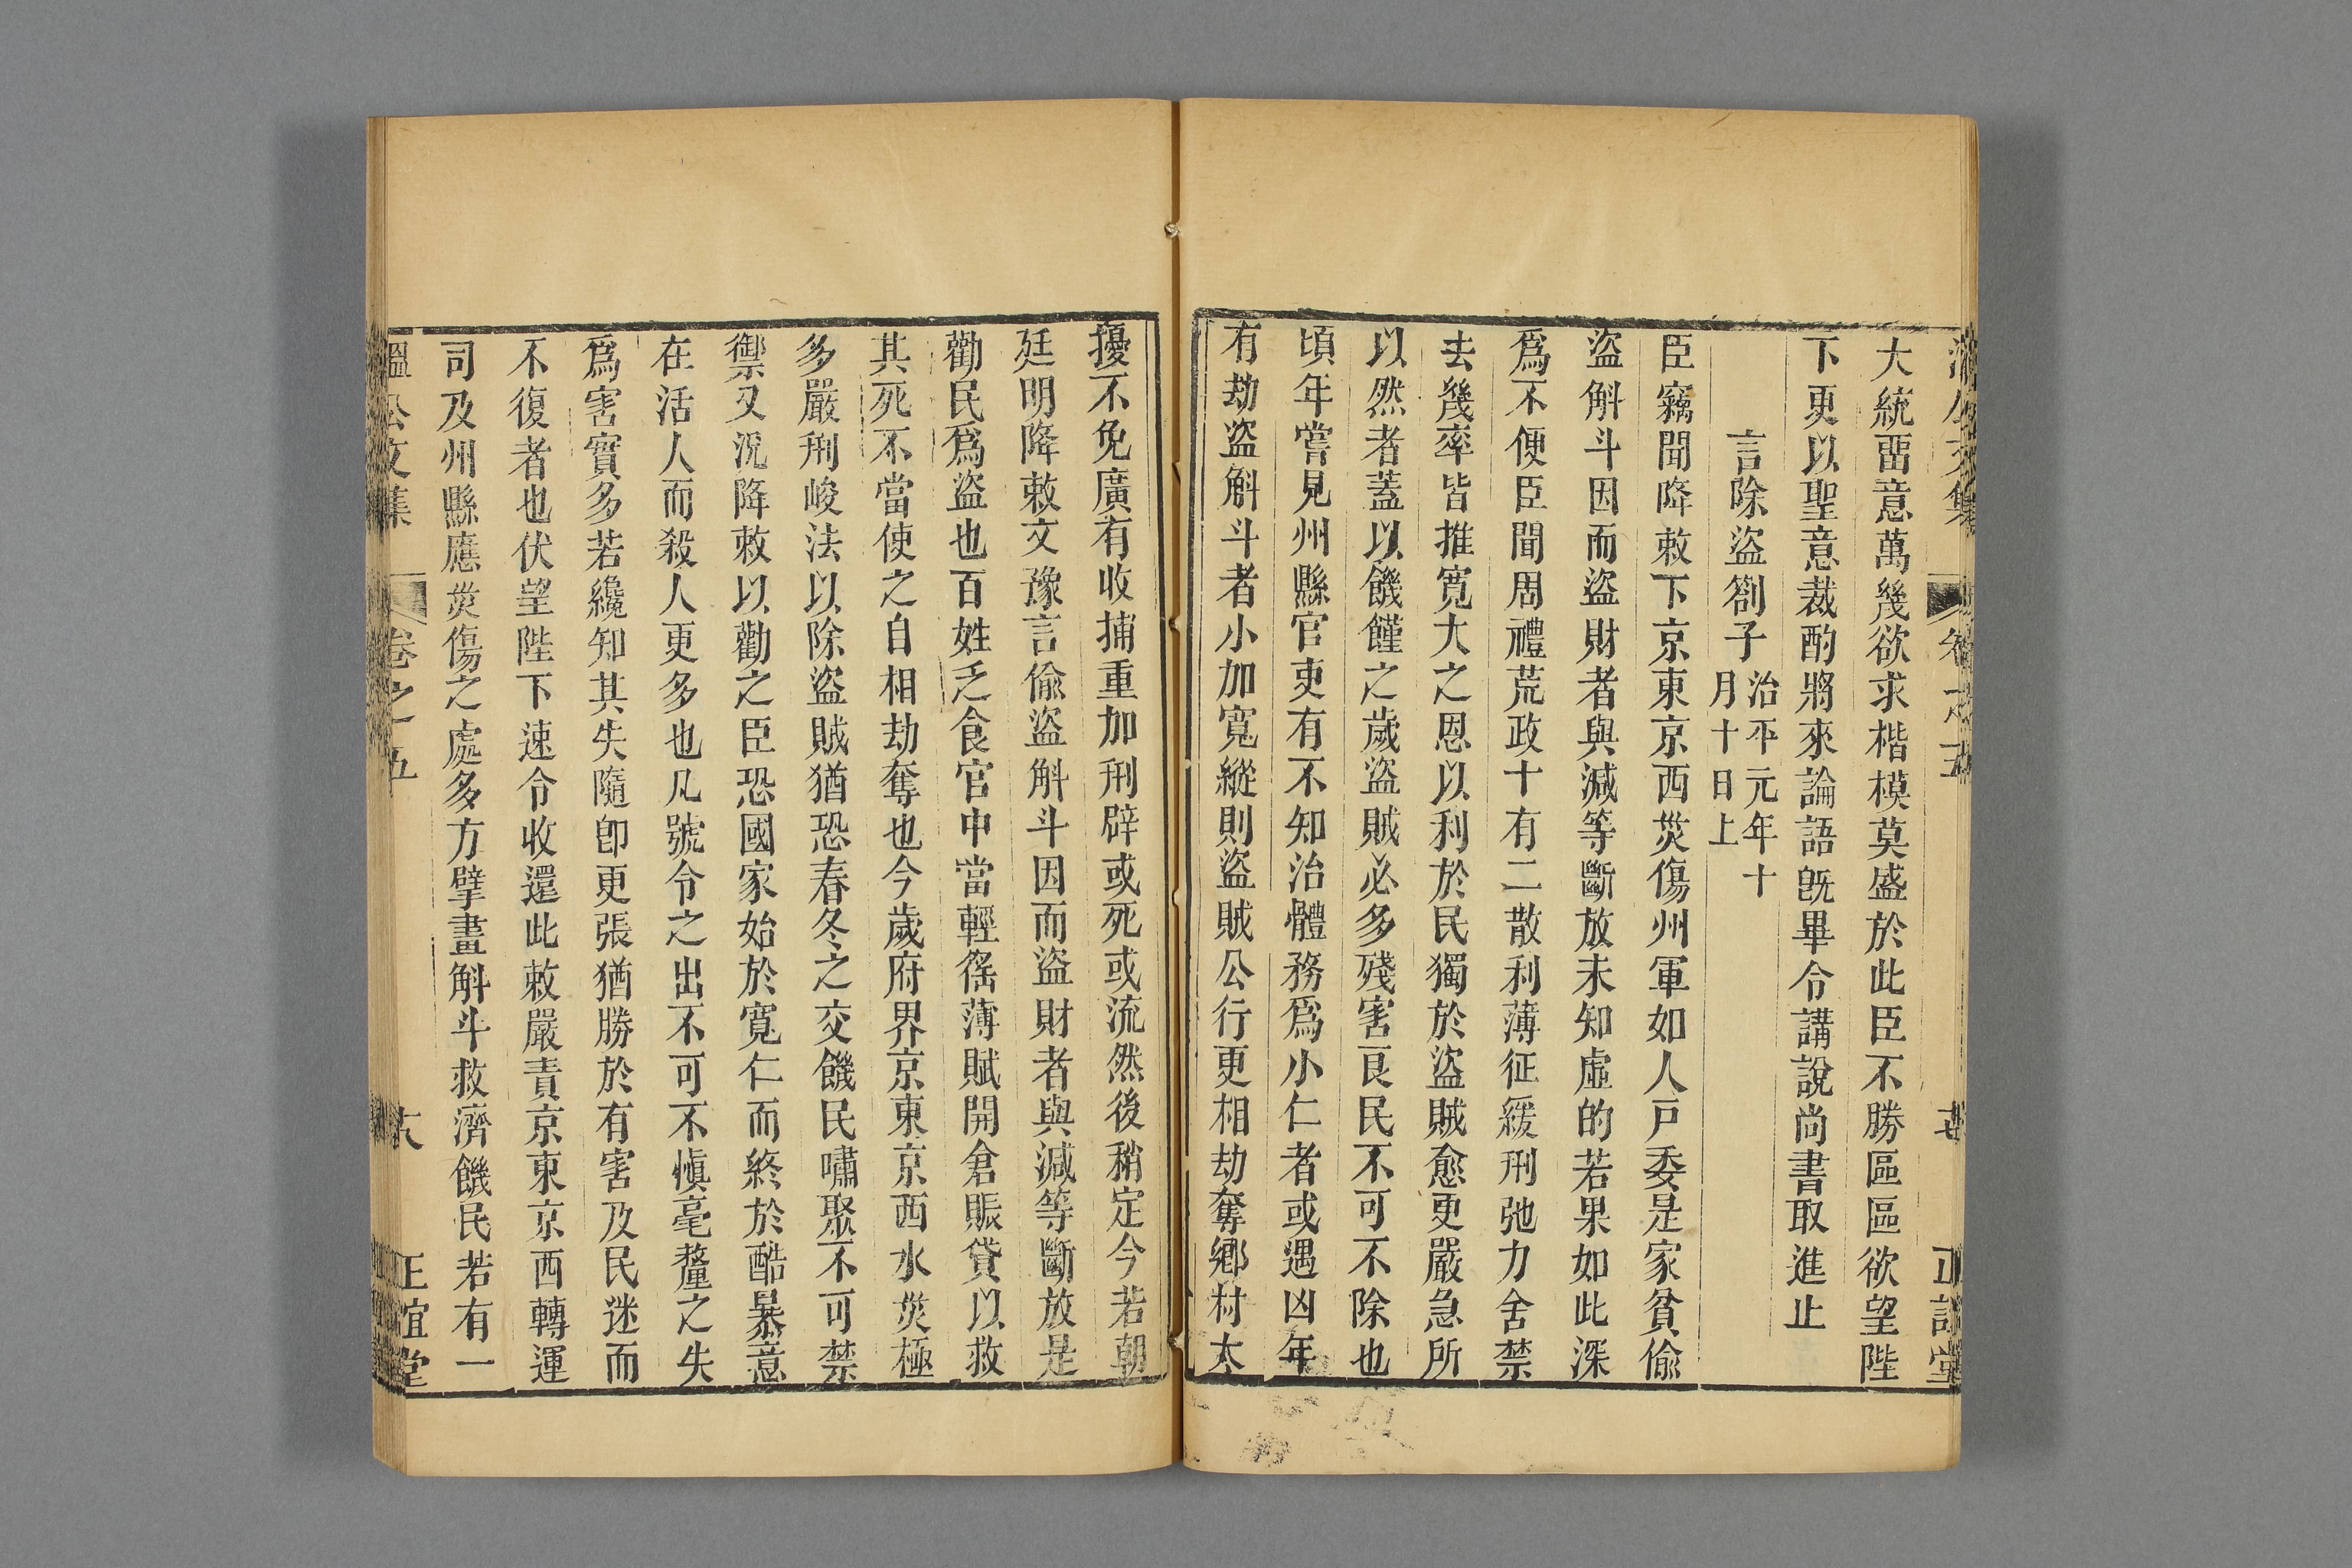 大統畱意萬幾欲求楷模莫盛於此臣不勝區區欲望陛
下更以聖意裁酌將來論語旣畢令講說尚書取進止
言除盜劄子治平元年十
月十日上
臣竊聞降敕下京東京西災傷州軍如人戸委是家貧偷
盜斛斗因而盜財者與減等斷放未知虛的若果如此深
爲不便臣聞周禮荒政十有二散利薄征緩刑弛力舍禁
去幾率皆推寬大之恩以利於民獨於盜賊愈更嚴急所
以然者蓋以饑饉之歲盜賊必多殘害良民不可不除也
頃年嘗見州縣官吏有不知治體務爲小仁者或遇凶年
有劫盜斛斗者小加寬縱則盜賊公行更相劫奪鄉村大
擾不免廣有收捕重加刑辟或死或流然後稍定今若朝
廷明降敕文豫言偷盜斛斗因而盜財者與減等斷放是
勸民爲盜也百姓乏食官中當輕徭薄賦開倉賑貸以救
其死不當使之自相劫奪也今歲府界京東京西水災極
多嚴刑峻法以除盜賊猶恐春冬之交饑民嘯聚不可禁
禦又況降敕以勸之臣恐國家始於寬仁而終於酷暴意
在活人而殺人更多也凡號令之出不可不愼毫釐之失
爲害實多若纔知其失隨卽更張猶勝於有害及民迷而
不復者也伏望陛下速令收還此敕嚴責京東京西轉運
司及州縣應災傷之處多方擘畫斛斗救濟饑民若有一
溫公文集 卷之五 六 正誼堂